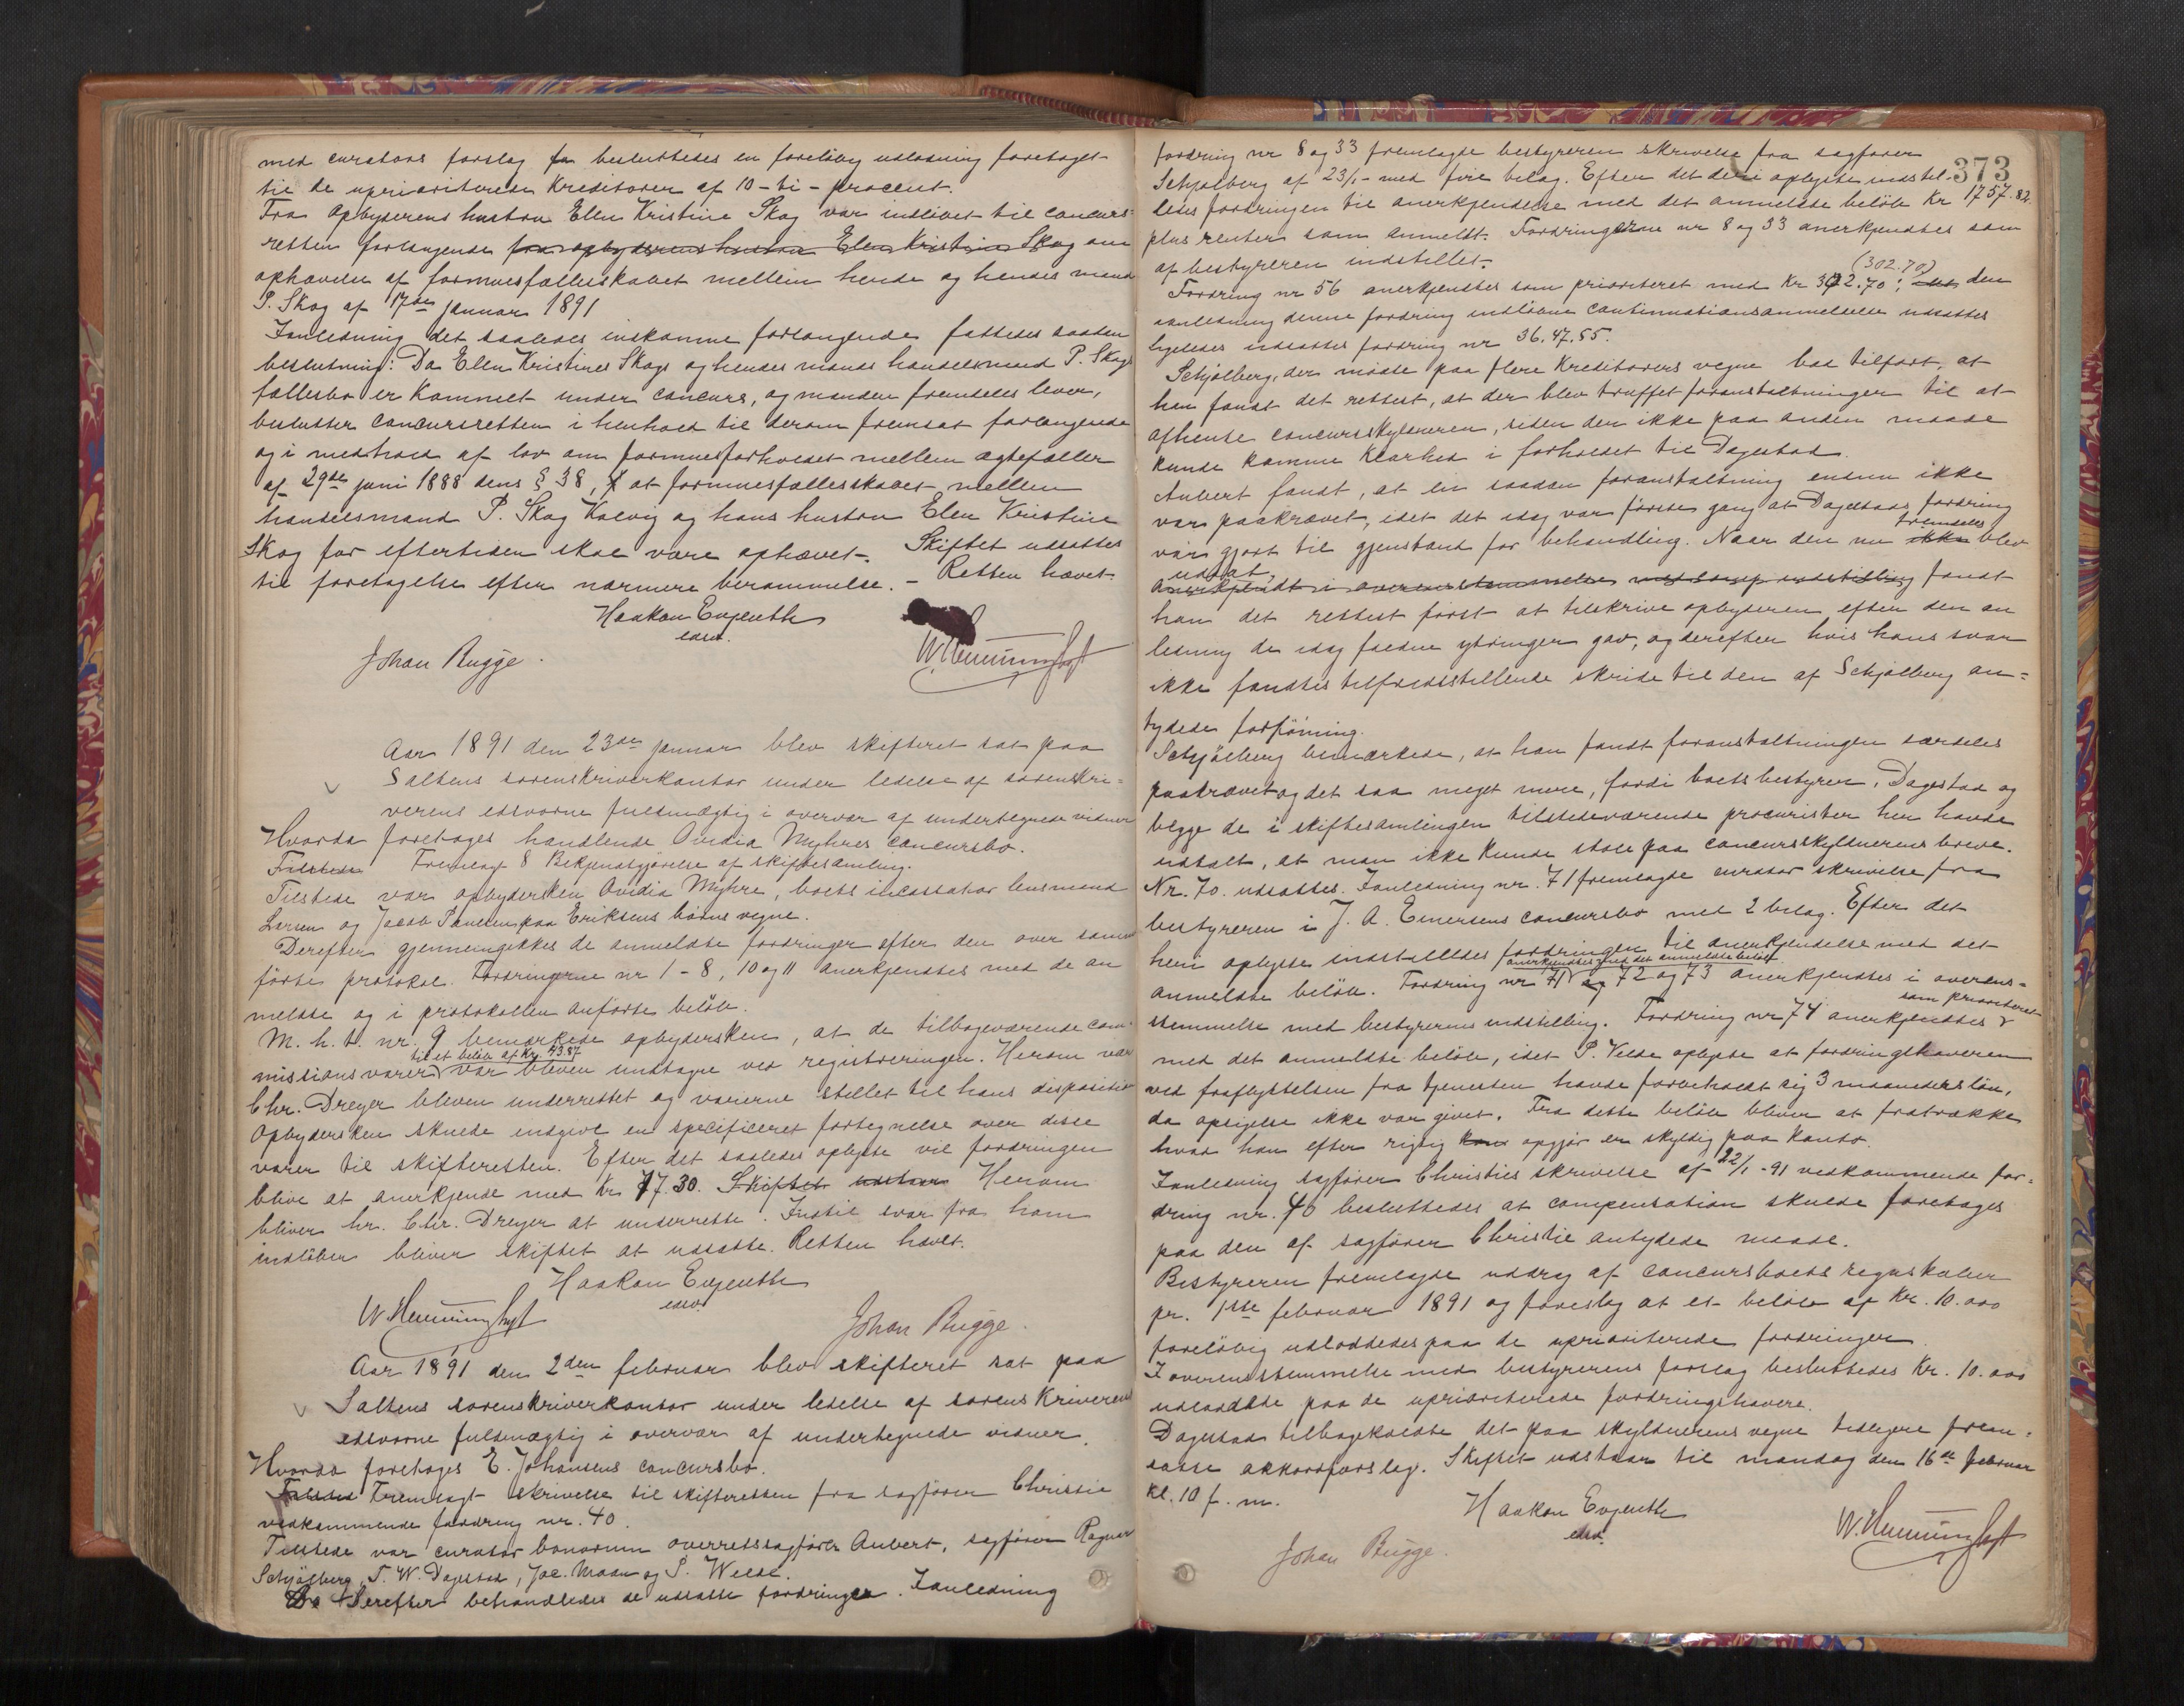 med curators forslag fra besluttedes en foreløbig udlodning foretaget
til de uprioriterede Kreditorer af 10 - ti - procent.
Fra opbyderens hustru Elen Kristine Skog var indløbet til concurs=
retten forlangende fra opbyderens hustru Elen Kristine Skog om
ophævelse af formuesfællesskabet mellem hende og hendes mand
P. Skog af 17de januar 1891
Ianledning det saaledes inkomne forlangende fattedes saaden
beslutning: Da Elen Kristines Skogs og hendes mands handelsmand P. Skogs
fællesbo er kommet under concurs, og manden fremdeles lever,
beslutter concursretten i henhold til derom fremsat forlangende
og i medhold af lov om formuesforholdet mellem ægtefæller
af 29de juni 1888 dens § 38, at formuesfællesskabet mellem
handelsmand P. Skog Kolvig og hans hustru Elen Kristine
Skog for eftertiden skal være ophævet. Skiftet udsattes
til foretagelse efter nærmere berammelse. - Retten hævet.
Haakon Evjenth
edsv.
Johan Bugge. W. Henninghoft
Aar 1891 den 23de januar blev skifteret sat paa
Saltens sorenskriverkontor under ledelse af sorenskri=
verens edsvorne fuldmægtig i overvær af undertegnede vidner
Hvorda foretoges handlende Ovidia Myhres concursbo.
Tilstede Fremlagt 8 Bekjendtgjørelse af skiftesamling.
Tilstede var opbydersken Ovidia Myhre, boets incassator lensmand
Larsen og Jacob Paulsen paa Eriksens børns vegne.
Derefter gjennemgikkes de anmeldte fordringer efter den over samme
førte protokol. Fordringerne nr 1 - 8, 10 og 11 anerkjendtes med de an
meldte og i protokollen anførte beløb.
M. h. t. nr. 9 bemærkede opbydersken, at de tilbageværende com=
til et beløb af Kr. 43.87
missionsvarer var bleven undtagne ved registreringen. Herom var
Chr. Dreyer bleven underrettet og varerne stillet til hans disposition
Opbydersken skulde indgive en specificeret fortegnelse over disse
varer til skifteretten. Efter det saaledes oplyste vil fordringen
blive at anerkjende med Kr 77.30. Skiftet udstaar Herom
bliver hr. Chr. Dreyer at underrette. Indtil svar fra ham
indløber bliver skiftet at udsætte. Retten hævet.
Haakon Evjenth
edsv.
W. Henninghoft Johan Bugge.
Aar 1891 den 2den februar blev skifteret sat paa
Saltens sorenskriverkontor under ledelse af sorenskriverens
edsvorne fuldmægtig i overvær af undertegnede vidner.
Hvorda foretoges E. Johansens concursbo.
Tilsted Fremlagt skrivelse til skifteretten fra sagfører Christie
vedkommende fordring nr. 40.
Tilstede var curator bonorum overretssagfører Aubert, sagfører Ragnar
Schjølberg, T. W. Dagestad, Jac. Moan og P. Welde.
Derefter behandledes de udsatte fordringer. Ianledning
373
fordring nr 8 og 33 fremlagde bestyreren skrivelse fra sagfører
Schjølberg af 23/1 - med fire bilag. Efter det deri oplyste indstil=
ledes fordringen til anerkjendelse med det anmeldte beløb Kr 1757.82.
plus renter som anmeldt. Fordringerne nr 8 og 33 anerkjendtes som
af bestyreren indstillet.
(302.70)
Fordring nr 56 anerkjendtes som prioriteret med Kr 302.70; den
ianledning denne fordring indløbne continuationsanmeldelse udsattes
ligeledes udsattes fordring nr 36. 47. 55.
Schjølberg, der mødte paa flere Kreditorers vegne bad tilført, at
han fandt det rettest, at der blev truffet foranstaltninger til at
afhente concursskyldneren, siden der ikke paa anden maade
kunde komme klarhed i forholdet til Dagestad.
Aubert fandt, at en saadan foranstaltning endnu ikke
var paakrævet, idet det idag var første gang at Dagestads fordring
fremdeles
var gjort til gjenstand for behandling. Naar den nu ikke blev
udsat,
anerkjendt i overensstemmelse med indstilling fandt
han det rettest først at tilskrive opbyderen efter den an
ledning de idag faldne ytringer gav, og derefter hvis hans svar
ikke fandtes tilfredsstillende skride til den af Schjølberg an=
tydede forføining.
Schjølberg bemærkede, at han fandt foranstaltningen særdeles
paakrævet og det saa meget mere, fordi boets bestyrer, Dagestad og
begge de i skiftesamlingen tilstedeværende procurister her havde
udtalt, at man ikke kunde stole paa concursskyldnerens breve.
Nr. 70. udsattes. Ianledning nr. 71 fremlagde curator skrivelse fra
bestyreren i J. A. Emersens concursbo med 2 bilag. Efter det
heri oplyste indstilledes fordringen til anerkjendelse med det
anerkjendtes med det anmeldte beløb
anmeldte beløb. Fordring nr 71 og 72 og 73 anerkjendtes i overens=
som prioriteret
stemmelse med bestyrerens indstilling. Fordring nr 74 anerkjendtes
med det anmeldte beløb, idet P. Velde oplyste at fordringshaveren
ved fraflyttelsen fra tjenesten havde forbeholdt sig 3 maaneders løn,
da opsigelse ikke var givet. Fra dette beløb bliver at fratrække
hvad han efter rigtig kon opgjør er skyldig paa konto.
Ianledning sagfører Christies skrivelse af 22/1 - 91 vedkommende for=
dring nr. 40 besluttedes at compensation skulde foretages
paa den af sagfører Christie antydede maade.
Bestyreren fremlagde uddrag af concursboets regnskaber
pr. 1ste februar 1891 og foreslog at et beløb af Kr. 10.000
foreløbig udloddedes paa de uprioriterede fordringer
I overensstemmelse med bestyrerens forslag besluttedes Kr. 10.000
udloddede paa de uprioriterede fordringshavere.
Dagestad tilbagekaldte det paa skyldnerens vegne tidligere frem=
satte akkordforslag. Skiftet udstaar til mandag den 16de februar
Kl. 10 f. m.
Haakon Evjenth
edsv.
Johan Bugge. W. Henninghoft